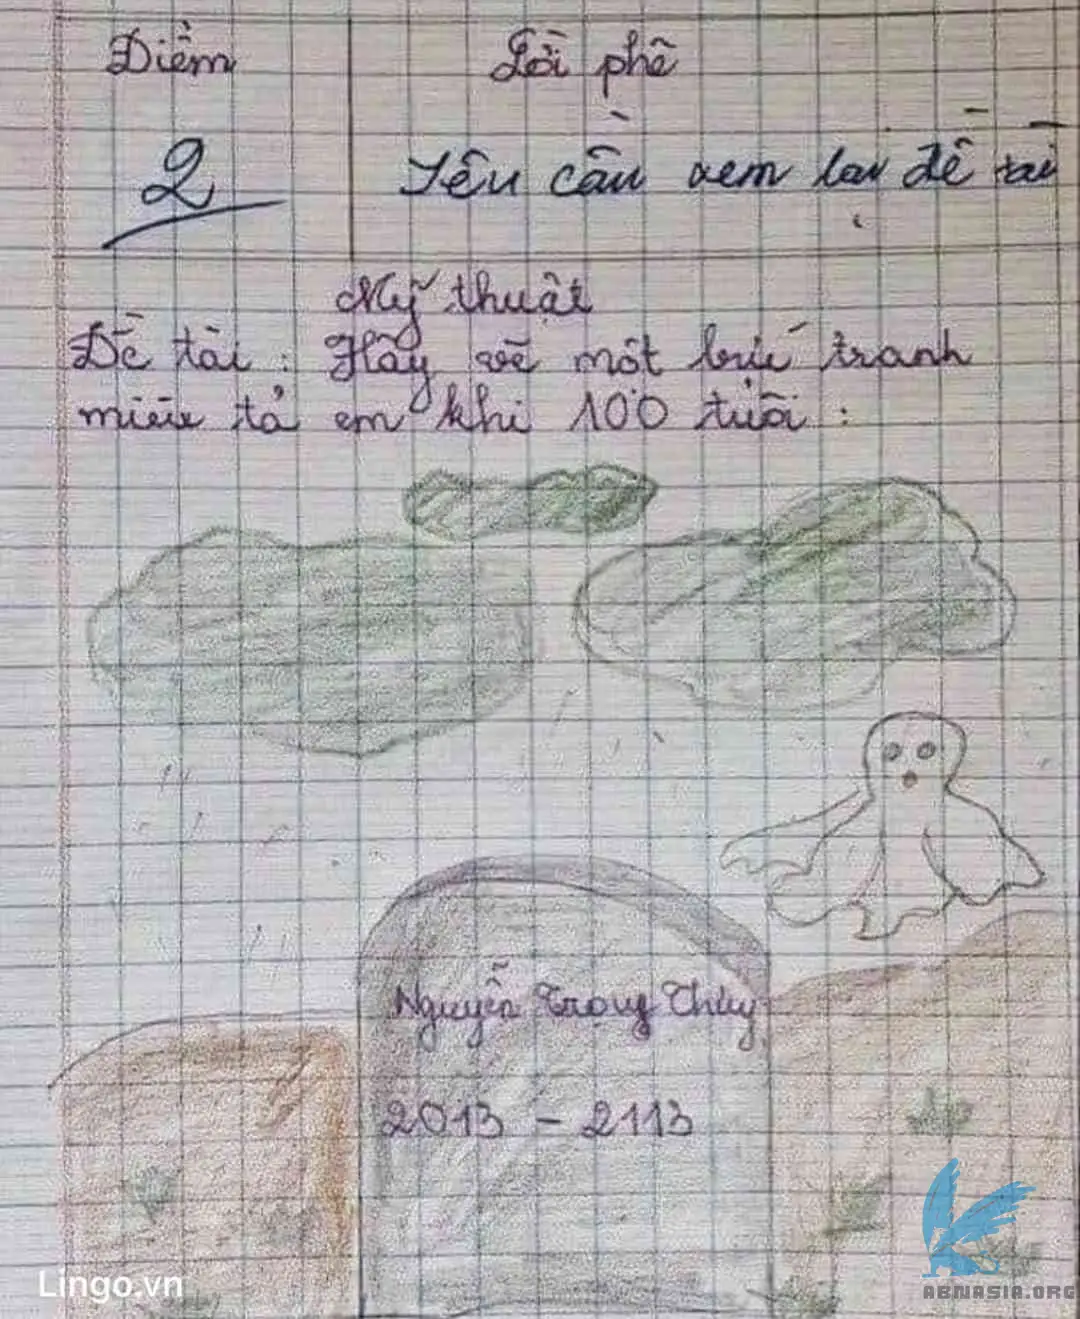 Điểm
Lời phê
2
Yêu cầu xem lại đề tài
Mỹ thuật
Đề tài : Hãy vẽ một bức tranh
miêu tả em khi 100 tuổi :
Nguyễn Trọng Thùy
2013 - 2113
Lingo.vn
ABNASIA.ORG